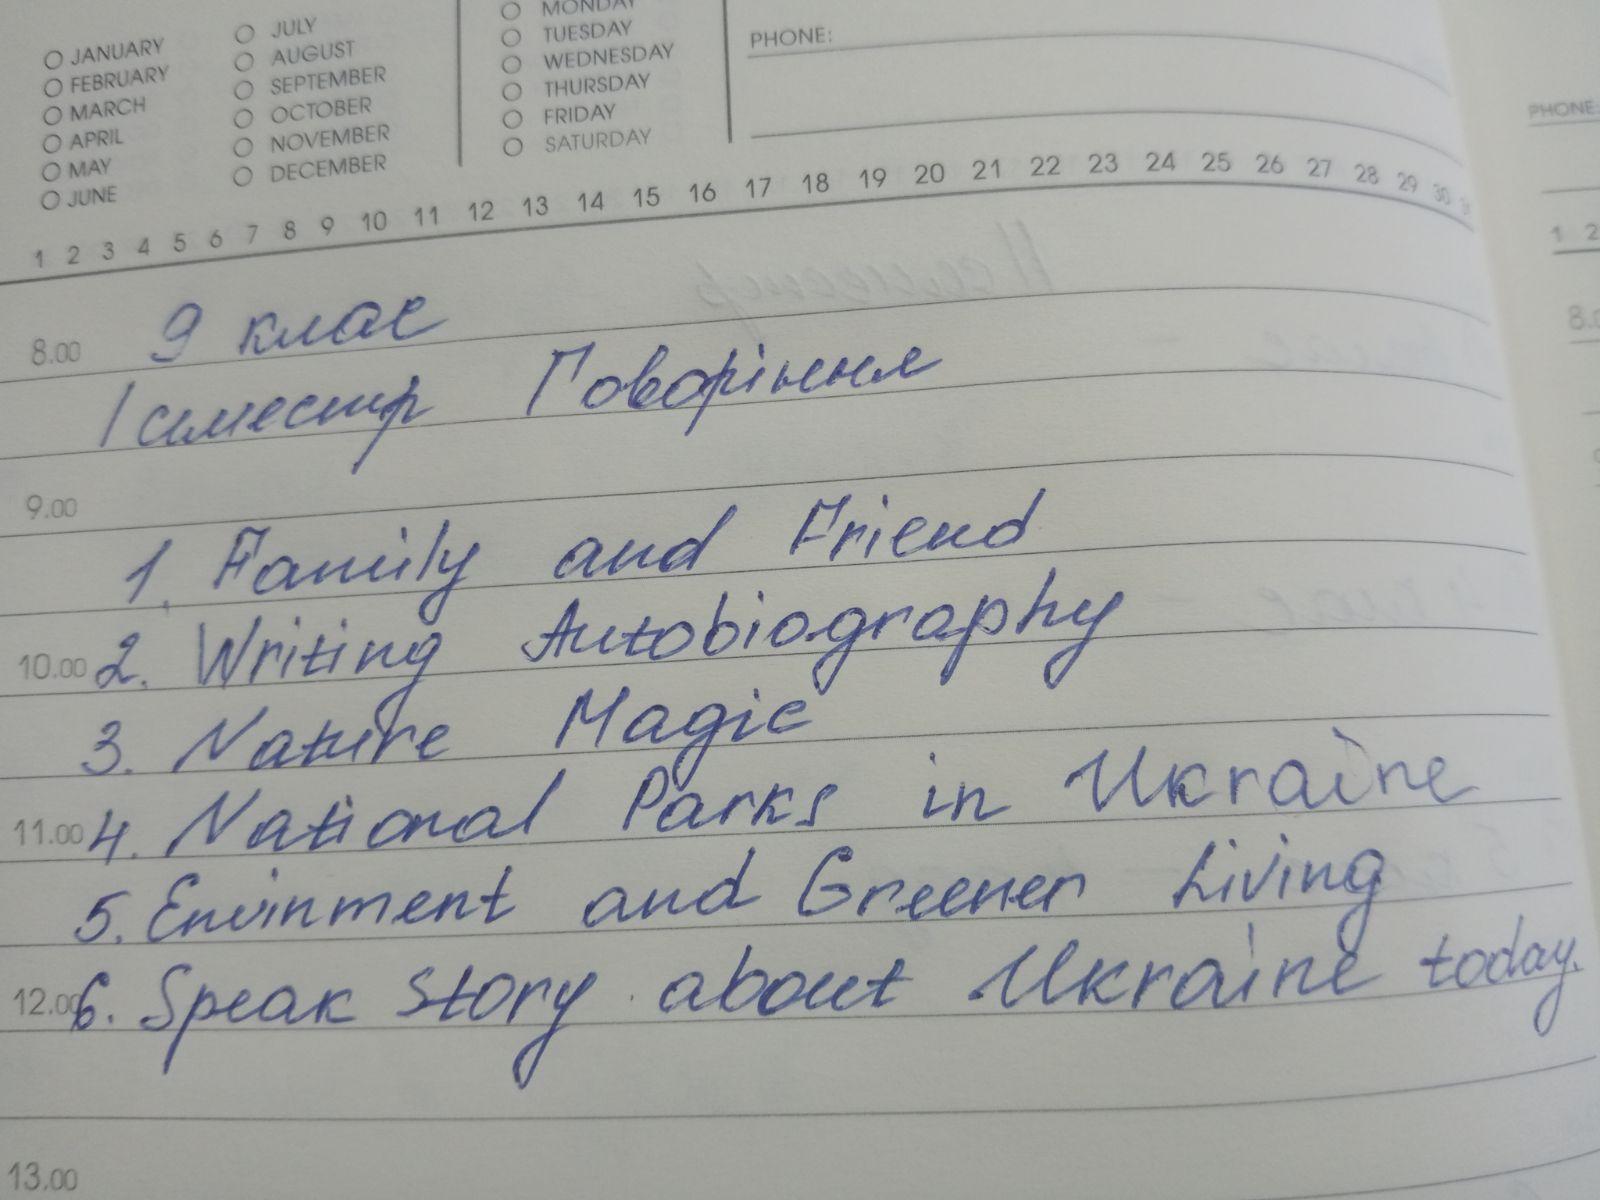 JANUARY JULY MONDAY
FEBRUARY AUGUST TUESDAY PHONE:
MARCH SEPTEMBER WEDNESDAY
APRIL OCTOBER THURSDAY
MAY NOVEMBER FRIDAY
JUNE DECEMBER SATURDAY
PHONE:
1 2 3 4 5 6 7 8 9 10 11 12 13 14 15 16 17 18 19 20 21 22 23 24 25 26 27 28 29 30 31
1 2
8.00 9 клас
І семестр Говоріння
9.00
1. Family and Friend
10.00 2. Writing Autobiography
3. Nature Magic
11.00 4. National Parks in Ukraine
5. Envinment and Greener Living
12.00 6. Speak story about Ukraine today.
13.00